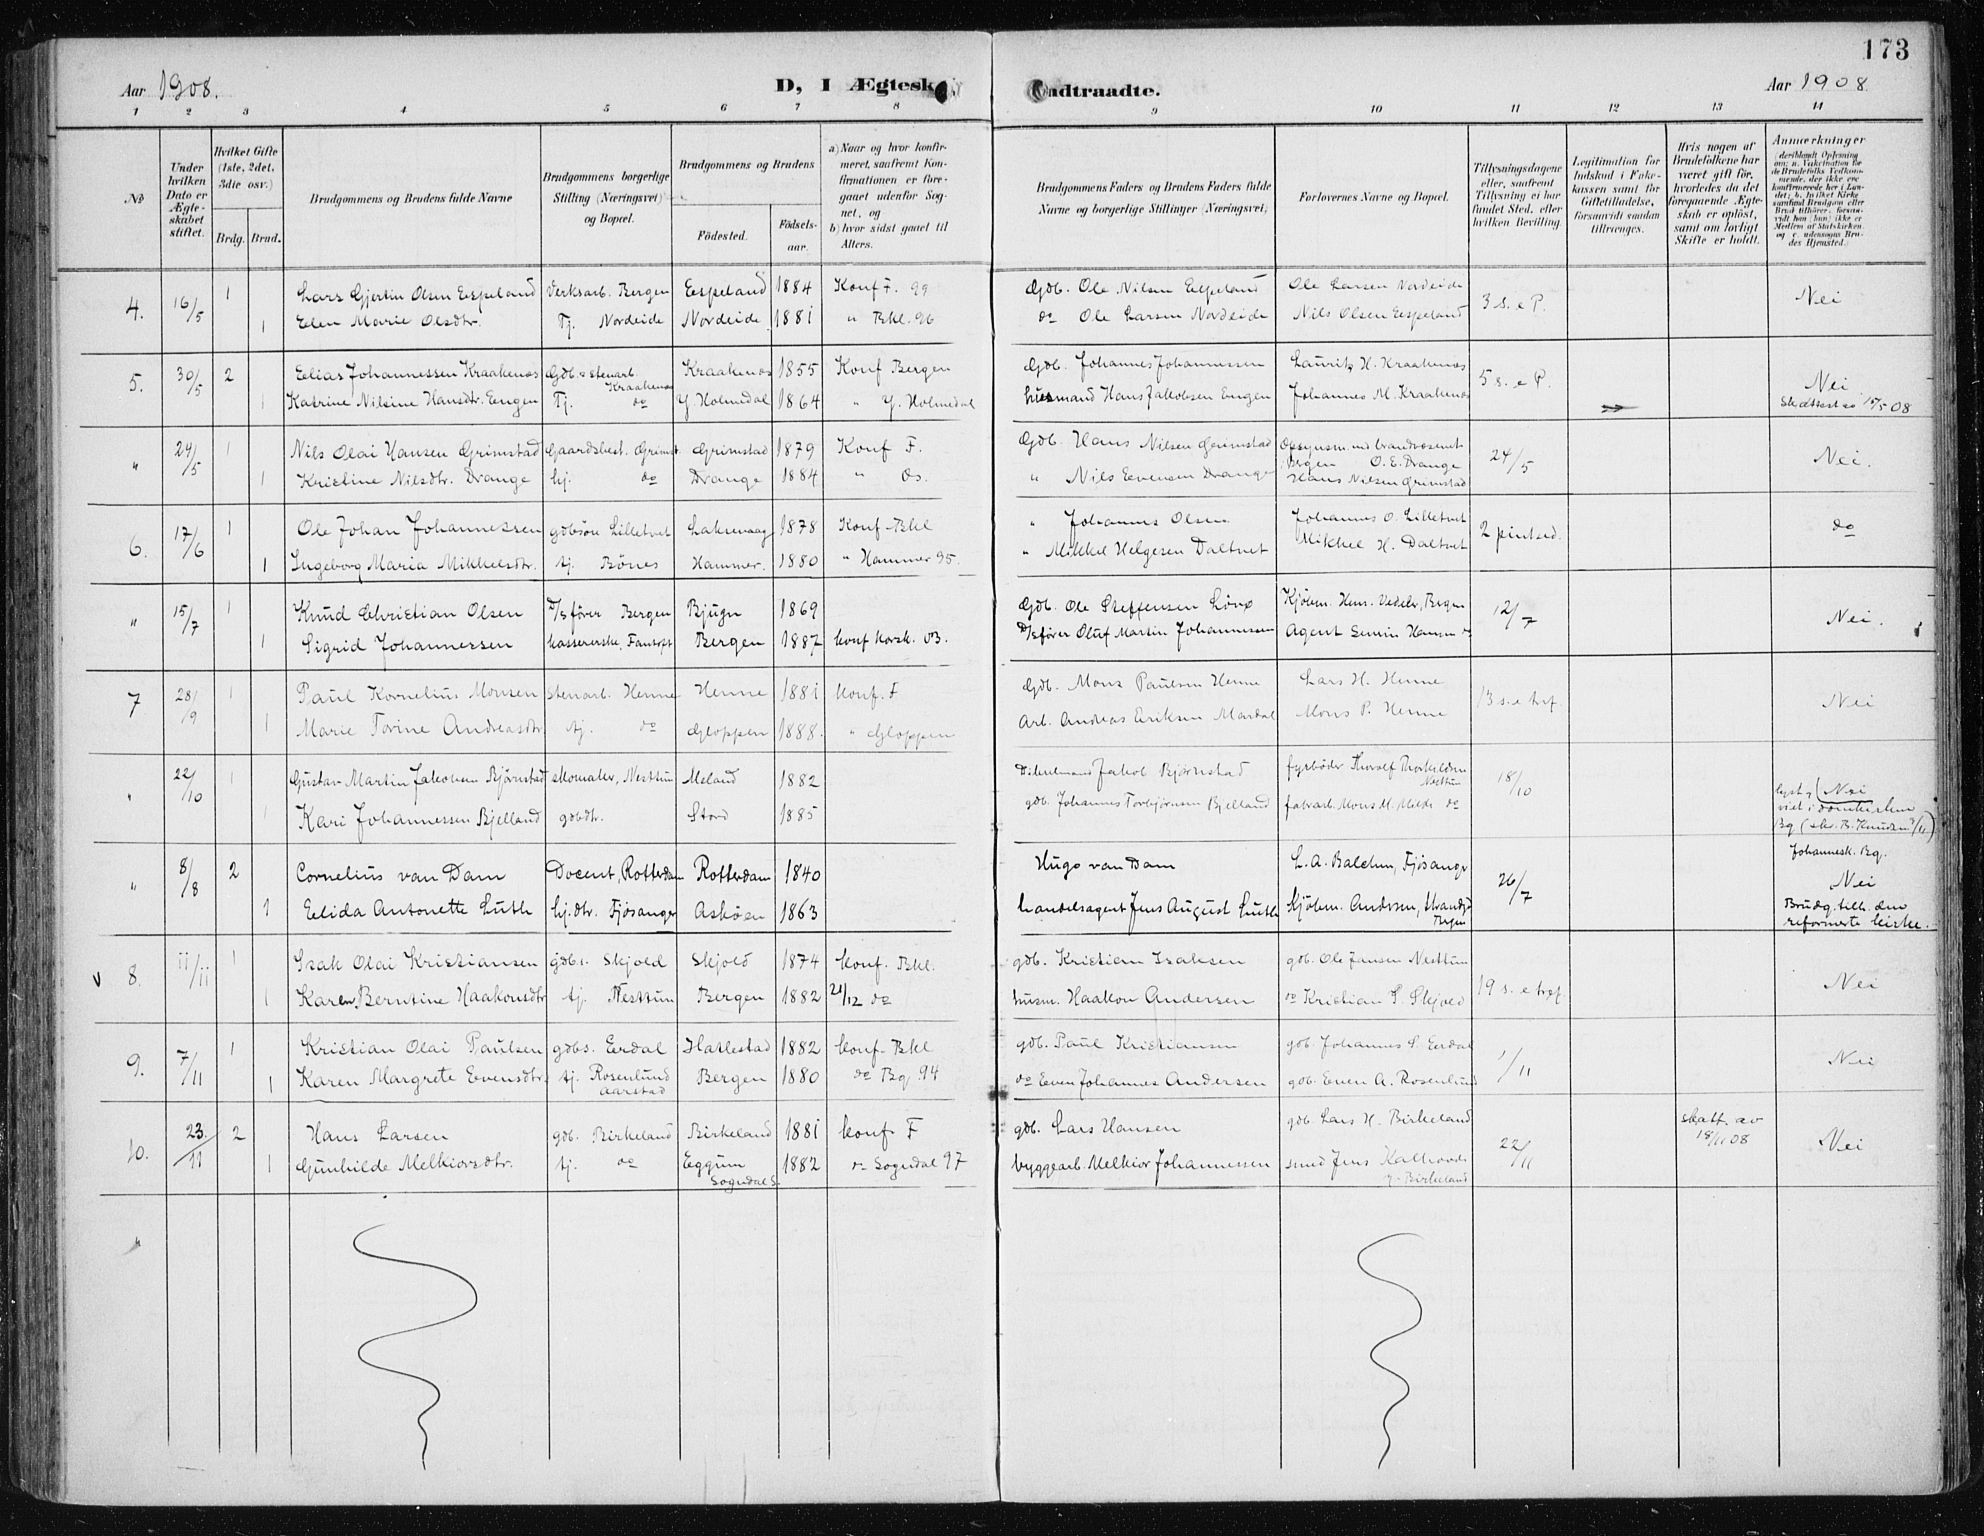 173
Aar 1908.
D, I Ægtesk
ndtraadte.
Aar 1908
1 2 3 4 5 6 7 8 9 10 11 12 13 14
No
Under hvilken Dato er Ægteskabet stiftet.
Hvilket Gifte (1ste, 2det, 3die osv.)
Brdg. Brud.
Brudgommens og Brudens fulde Navne
Brudgommens borgerlige Stilling (Næringsvei) og Bopæl.
Brudgommens og Brudens
Födested. Födselsaar.
a) Naar og hvor konfirmeret, saafremt Konfirmationen er foregaaet udenfor Sognet, og
b) hvor sidst gaaet til Alters.
Brudgommens Faders og Brudens Faders fulde Navne og borgerlige Stillinger (Næringsvei)
Forlovernes Navne og Bopæl.
Tillysningsdagene eller, saafremt Tillysning ei har fundet Sted, efter hvilken Bevilling.
Legitimation for Indskud i Enkekassen samt for Giftetilladelse, forsaavidt saadan tiltrænges.
Hvis nogen af Brudefolkene har været gift för, hvorledes da det foregaaende Ægteskab er oplöst, samt om lovligt Skifte er holdt.
Anmærkninger
4. 16/5 1 Lars Gjertin Olsen Espeland Verksarb. Bergen Espeland 1884 Konf F. 99 Gdb. Ole Nilsen Espeland Ole Larsen Nordeide 3 s. e P. Nei
1 Elen Marie Olsdtr. Tj. Nordeide Nordeide 1881 " Bkl. 96 do Ole Larsen Nordeide Nils Olsen Espeland
5. 30/5 2 Elias Johannessen Kraakenes Gdb. & stenarb Kraakenes Kraakenes 1855 Konf Bergen Gdb. Johannes Johannessen Lauritz H. Kraakenes 5 s. e P. Nei
1 Katrine Nilsine Hansdtr. Engen Tj. do Y. Holmedal 1864 " Y. Holmedal Husmand Hans Jakobsen Engen Johannes M. Kraakenes 15/5 08
" 24/5 1 Nils Olai Hansen Grimstad Gaardsbest. Grimst. Grimstad 1879 Konf F. Gdb. Hans Nilsen Grimstad Opsynsm. ved brandvæsenet Bergen O. E. Drange 24/5 Nei.
1 Kristine Nilsdtr. Drange hj. do Drange 1884 " Os. " Nils Evensen Drange Hans Nilsen Grimstad
6. 17/6 1 Ole Johan Johannessen gdbsön Lilletvet Laksevaag 1878 Konf Bkl " Johannes Olsen Johannes O. Lilletvet 2 pintsed. do
1 Ingeborg Maria Mikkelsdtr. tj. Bönes Hammer. 1880 " Hammer 95. " Mikkel Helgesen Daltvet Mikkel H. Daltvet
" 15/7 1 Knud Christian Olsen D/sförer Bergen Bjugn 1869 Gdb. Ole Steffensen Kjöbm. Hens. Vedeler, Bergen 12/7 Nei.
1 Sigrid Johannessen kassererske, Fantoft Bergen 1887 konf korsk. 03. D/sförer Oluf Martin Johannessen Agent Hansen do
7 28/9 1 Paul Kornelius Monsen Stenarb. Henne Henne 1881 konf. F Gdb. Mons Paulsen Henne Lars H. Henne 13 s. e tref. Nei
1 Marie Torine Andreasdtr. tj. do Gloppen 1888. " Gloppen Arb. Andreas Eriksen Mardal Mons P. Henne
" 22/10 1 Gustav Martin Jakobsen Björnstad skomaker, Nesttun Meland 1882 Jakob Björnstad fyrböder Thorolf Thorkildsen Nesttun 18/10 lyst, (Nei
1 Kari Johannessen Bjelland gdbdtr. Stord 1885 gdb. Johannes Torbjörnsen Bjelland fabrarb. Mons M. Milde do viet i domkirken Bg (skr. B. Knudsen 3/11)
" 8/8 2 Cornelius van Dam Docent, Rotterdam Rotterdam 1840 Hugo van Dam L. A. Balchen, Fjösanger 26/7 Johannesk. Bg. Nei
1 Elida Antonette Luth hj.dtr. Fjösanger Asköen 1863 handelsagent Jens August Luth Kjöbm. Andersen, Strandg. Bergen Brudg. tilh. den reformerte kirke.
v 8. 11/11 1 Isak Olai Kristiansen gdbs. Skjold Skjold 1874 konf. Bkl. gdb. Kristian Isaksen gdb. Ole Jansen Nesttun 19 s. e tref. Nei
1 Karen Berntine Haakonsdtr tj. Nesttun Bergen 1882 21/12 do husm. Haakon Andersen do Kristian I. Skjold
9. 7/11 1 Kristian Olai Paulsen gdbs. Eerdal Hatlestad 1882 konf. Bkl gdb. Paul Kristiansen gdb. Johannes S. Eerdal 1/11 Nei
1 Karen Margrete Evensdtr. tj. Rosenlund Aarstad Bergen 1880 do Bg. 94 do Even Johannes Andersen gdb. Even A. Rosenlund
10. 23/11 2 Hans Larsen gdb. Birkeland Birkeland 1881 konf F gdb. Lars Hansen gdb. Lars H. Birkeland 22/11 skatt. av 18/11 08 Nei
1 Gunhilde Melkiorsdtr. tj. do Eggum Sogndal S. 1882 do Sogndal 97 byggearb. Melkior Johannessen smed Jens Birkeland
"